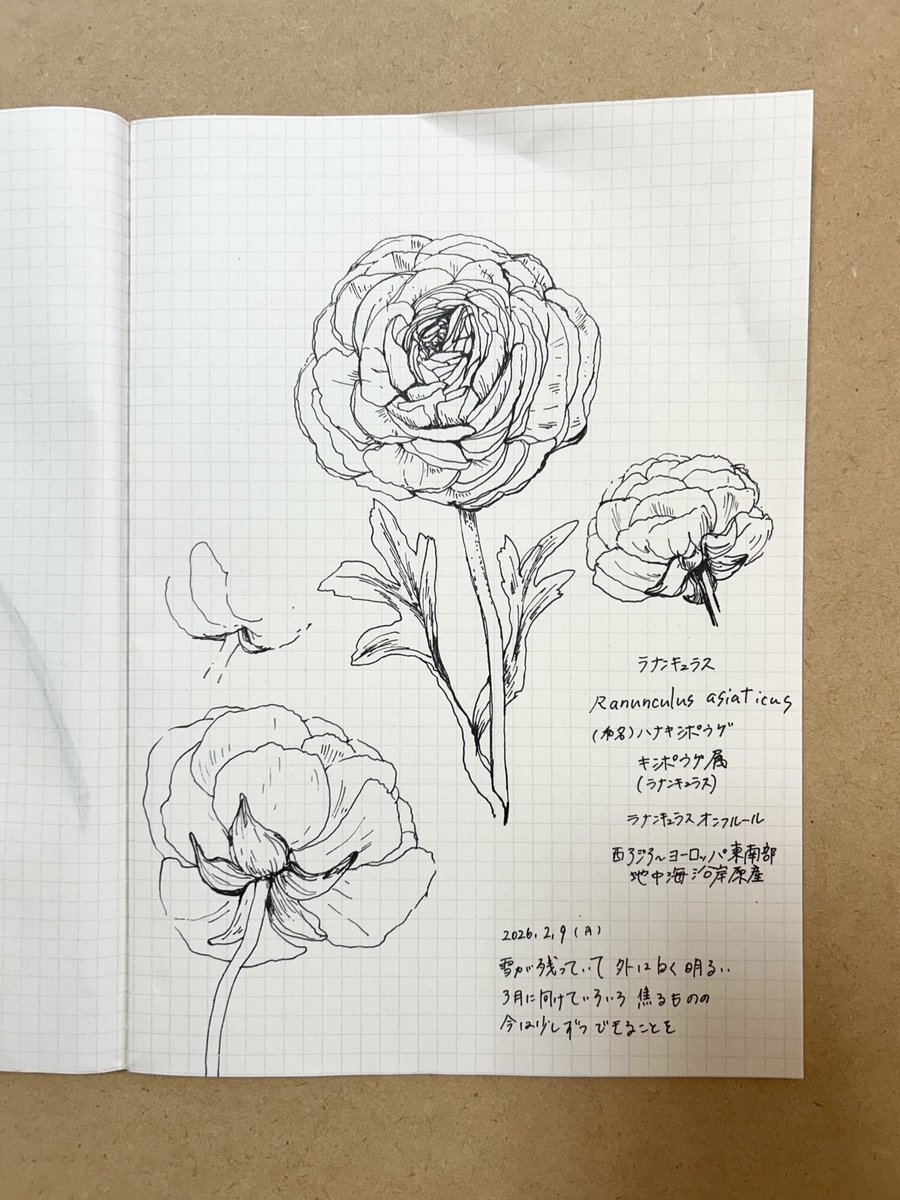 ラナンキュラス
Ranunculus asiaticus
(和名)ハナキンポウゲ
キンポウゲ属
(ラナンキュラス)
ラナンキュラス オンフルール
西アジア〜ヨーロッパ東南部
地中海沿岸原産
2026.2.9(月)
雪が残っていて 外は白く明るい
3月に向けていろいろ 焦るものの
今は少しずつ できることを